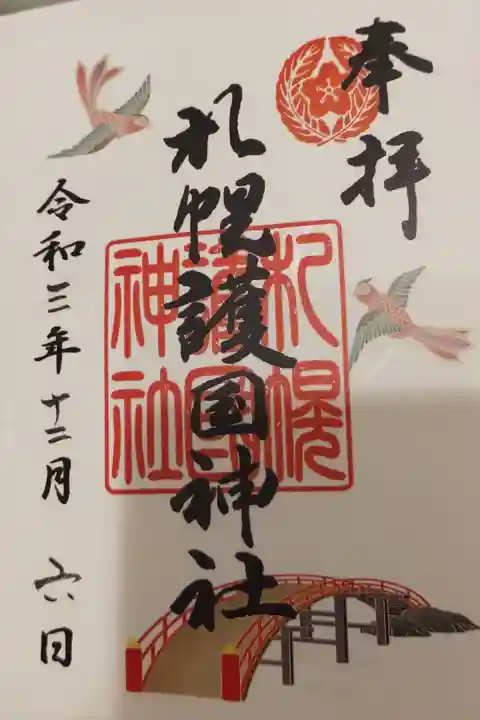 奉拝
札幌護国神社
札幌
護国
神社
令和三年十二月 六日